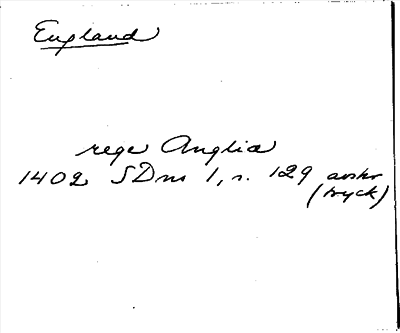 England
rege Anglia
1402 SDns 1, s. 129 avskr
(tryck)